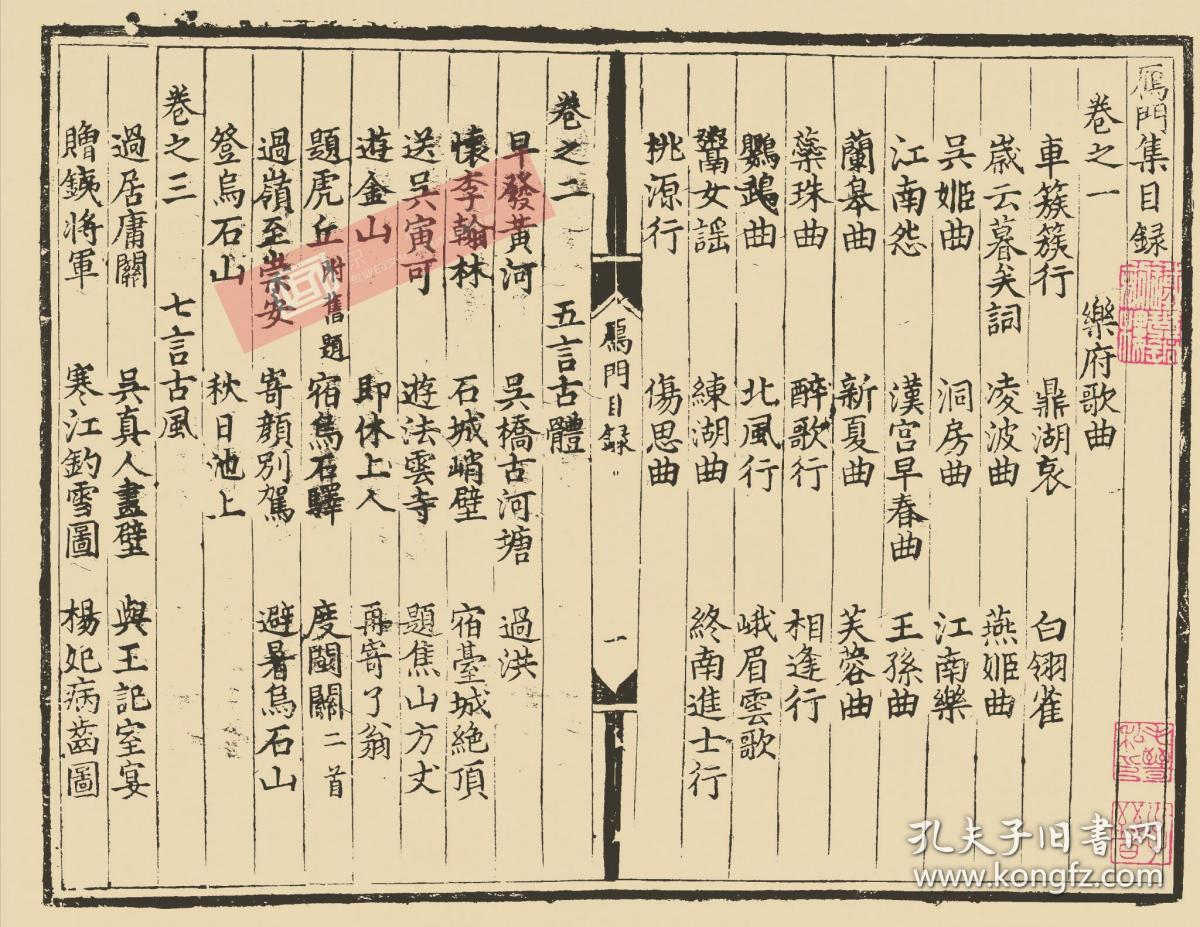 鴈門集目録
卷之一 樂府歌曲
車簇簇行 鼎湖哀 白翎雀
嵗云暮矣詞 凌波曲 燕姬曲
吳姬曲 洞房曲 江南樂
江南怨 漢宮早春曲 王孫曲
蘭皋曲 新夏曲 芙蓉曲
蘂珠曲 醉歌行 相逢行
鸚鵡曲 北風行 峨眉雲歌
鬻女謡 練湖曲 終南進士行
桃源行 傷思曲
鴈門目録 一
卷之二 五言古體
早發黃河 吳橋古河塘 過洪
懐李翰林 石城峭壁 宿臺城絶頂
送吳寅可 遊法雲寺 題焦山方丈
遊金山 即休上人 再寄了翁
題虎丘附舊題 宿烏石驛 度閩關二首
過嶺至崇安 寄顔別駕 避暑烏石山
登烏石山 秋日池上
卷之三 七言古風
過居庸關 吳真人畫壁 與王記室宴
贈銕將軍 寒江釣雪圖 楊妃病齒圖
孔夫子旧书网
www.kongfz.com